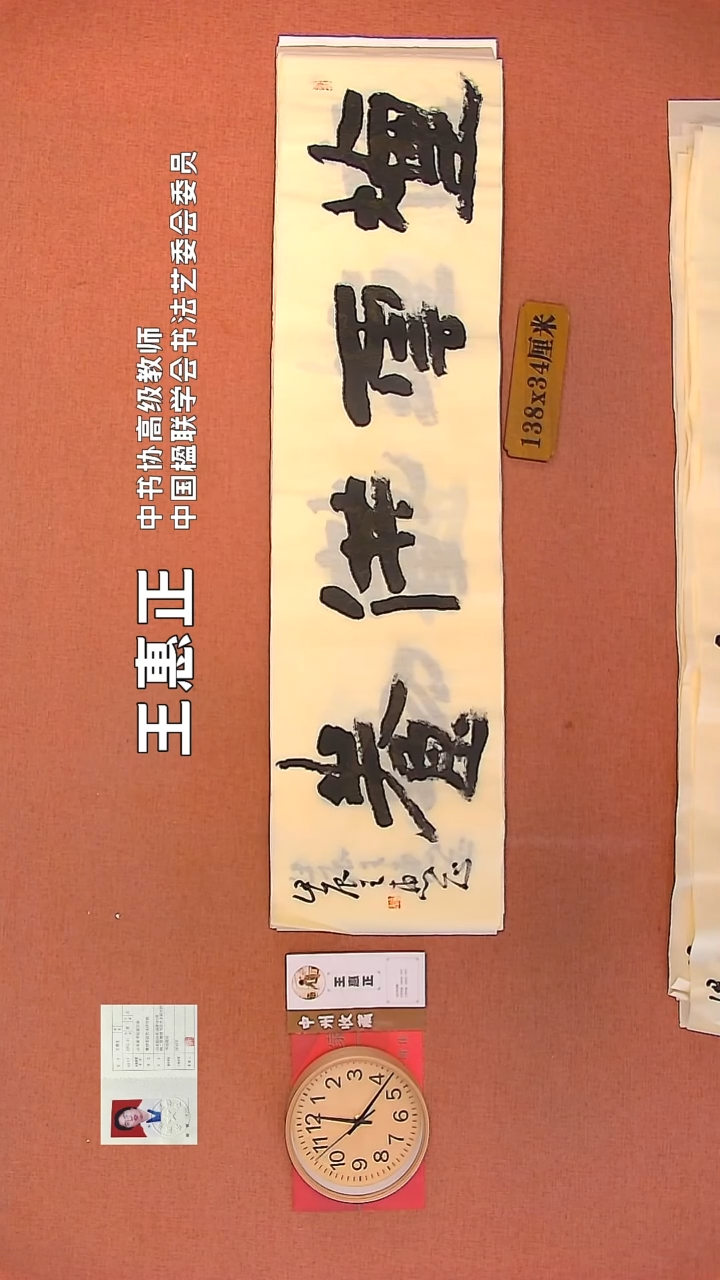 王惠正
中书协高级教师
中国楹联学会书法艺委会委员
煙雲供養
甲辰王惠正
138x34厘米
王惠正
中州收藏
12
1
2
3
4
5
6
7
8
9
10
11